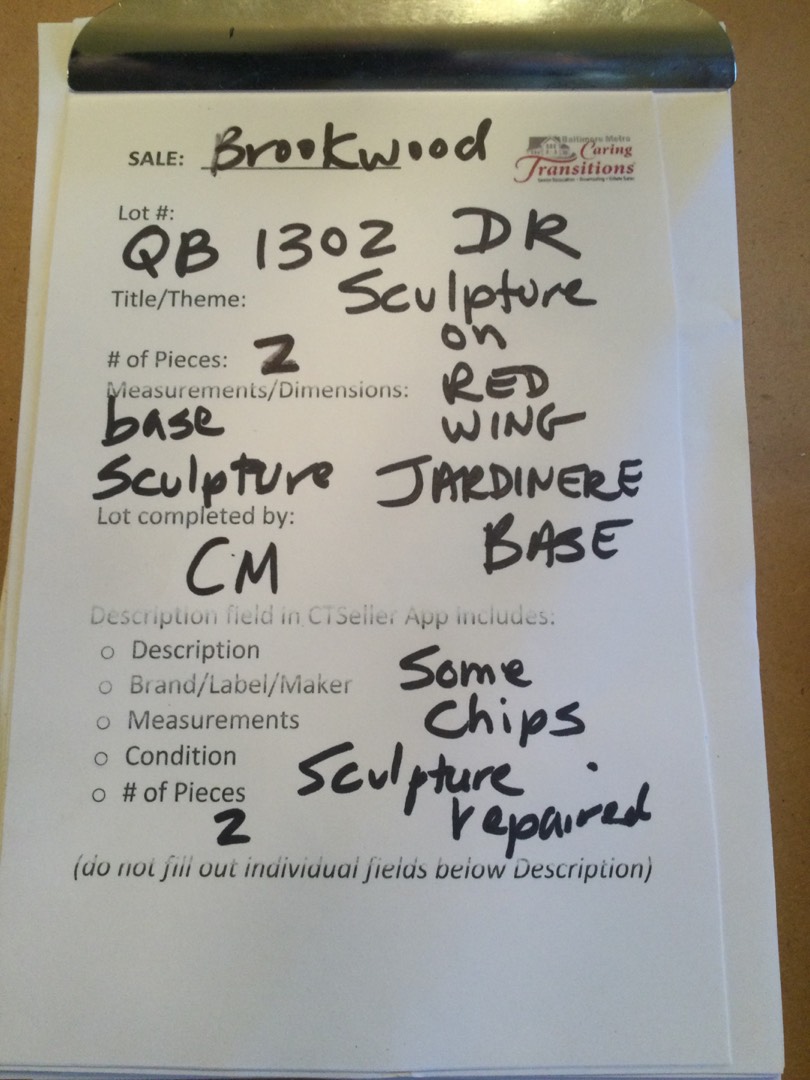 SALE: Brookwood
Baltimore Metro
Caring
Transitions
Lot #:
QB 1302 DR
Title/Theme: Sculpture
on
# of Pieces: 2
RED
Measurements/Dimensions:
WING
base
Sculpture JARDINERE
Lot completed by:
BASE
CM
Description field in CTSeller App includes:
○ Description
Some
○ Brand/Label/Maker
○ Measurements
Chips
○ Condition
Sculpture
○ # of Pieces
repaired
2
(do not fill out individual fields below Description)